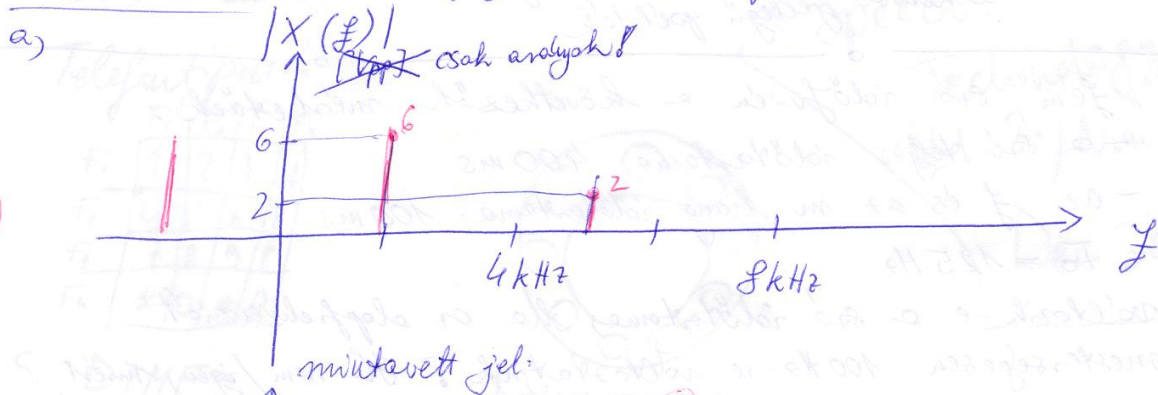 a)
|X(f)|
[Vpp] csak arányok!
6
6
2
2
4 kHz
8 kHz
f
mintavett jel: